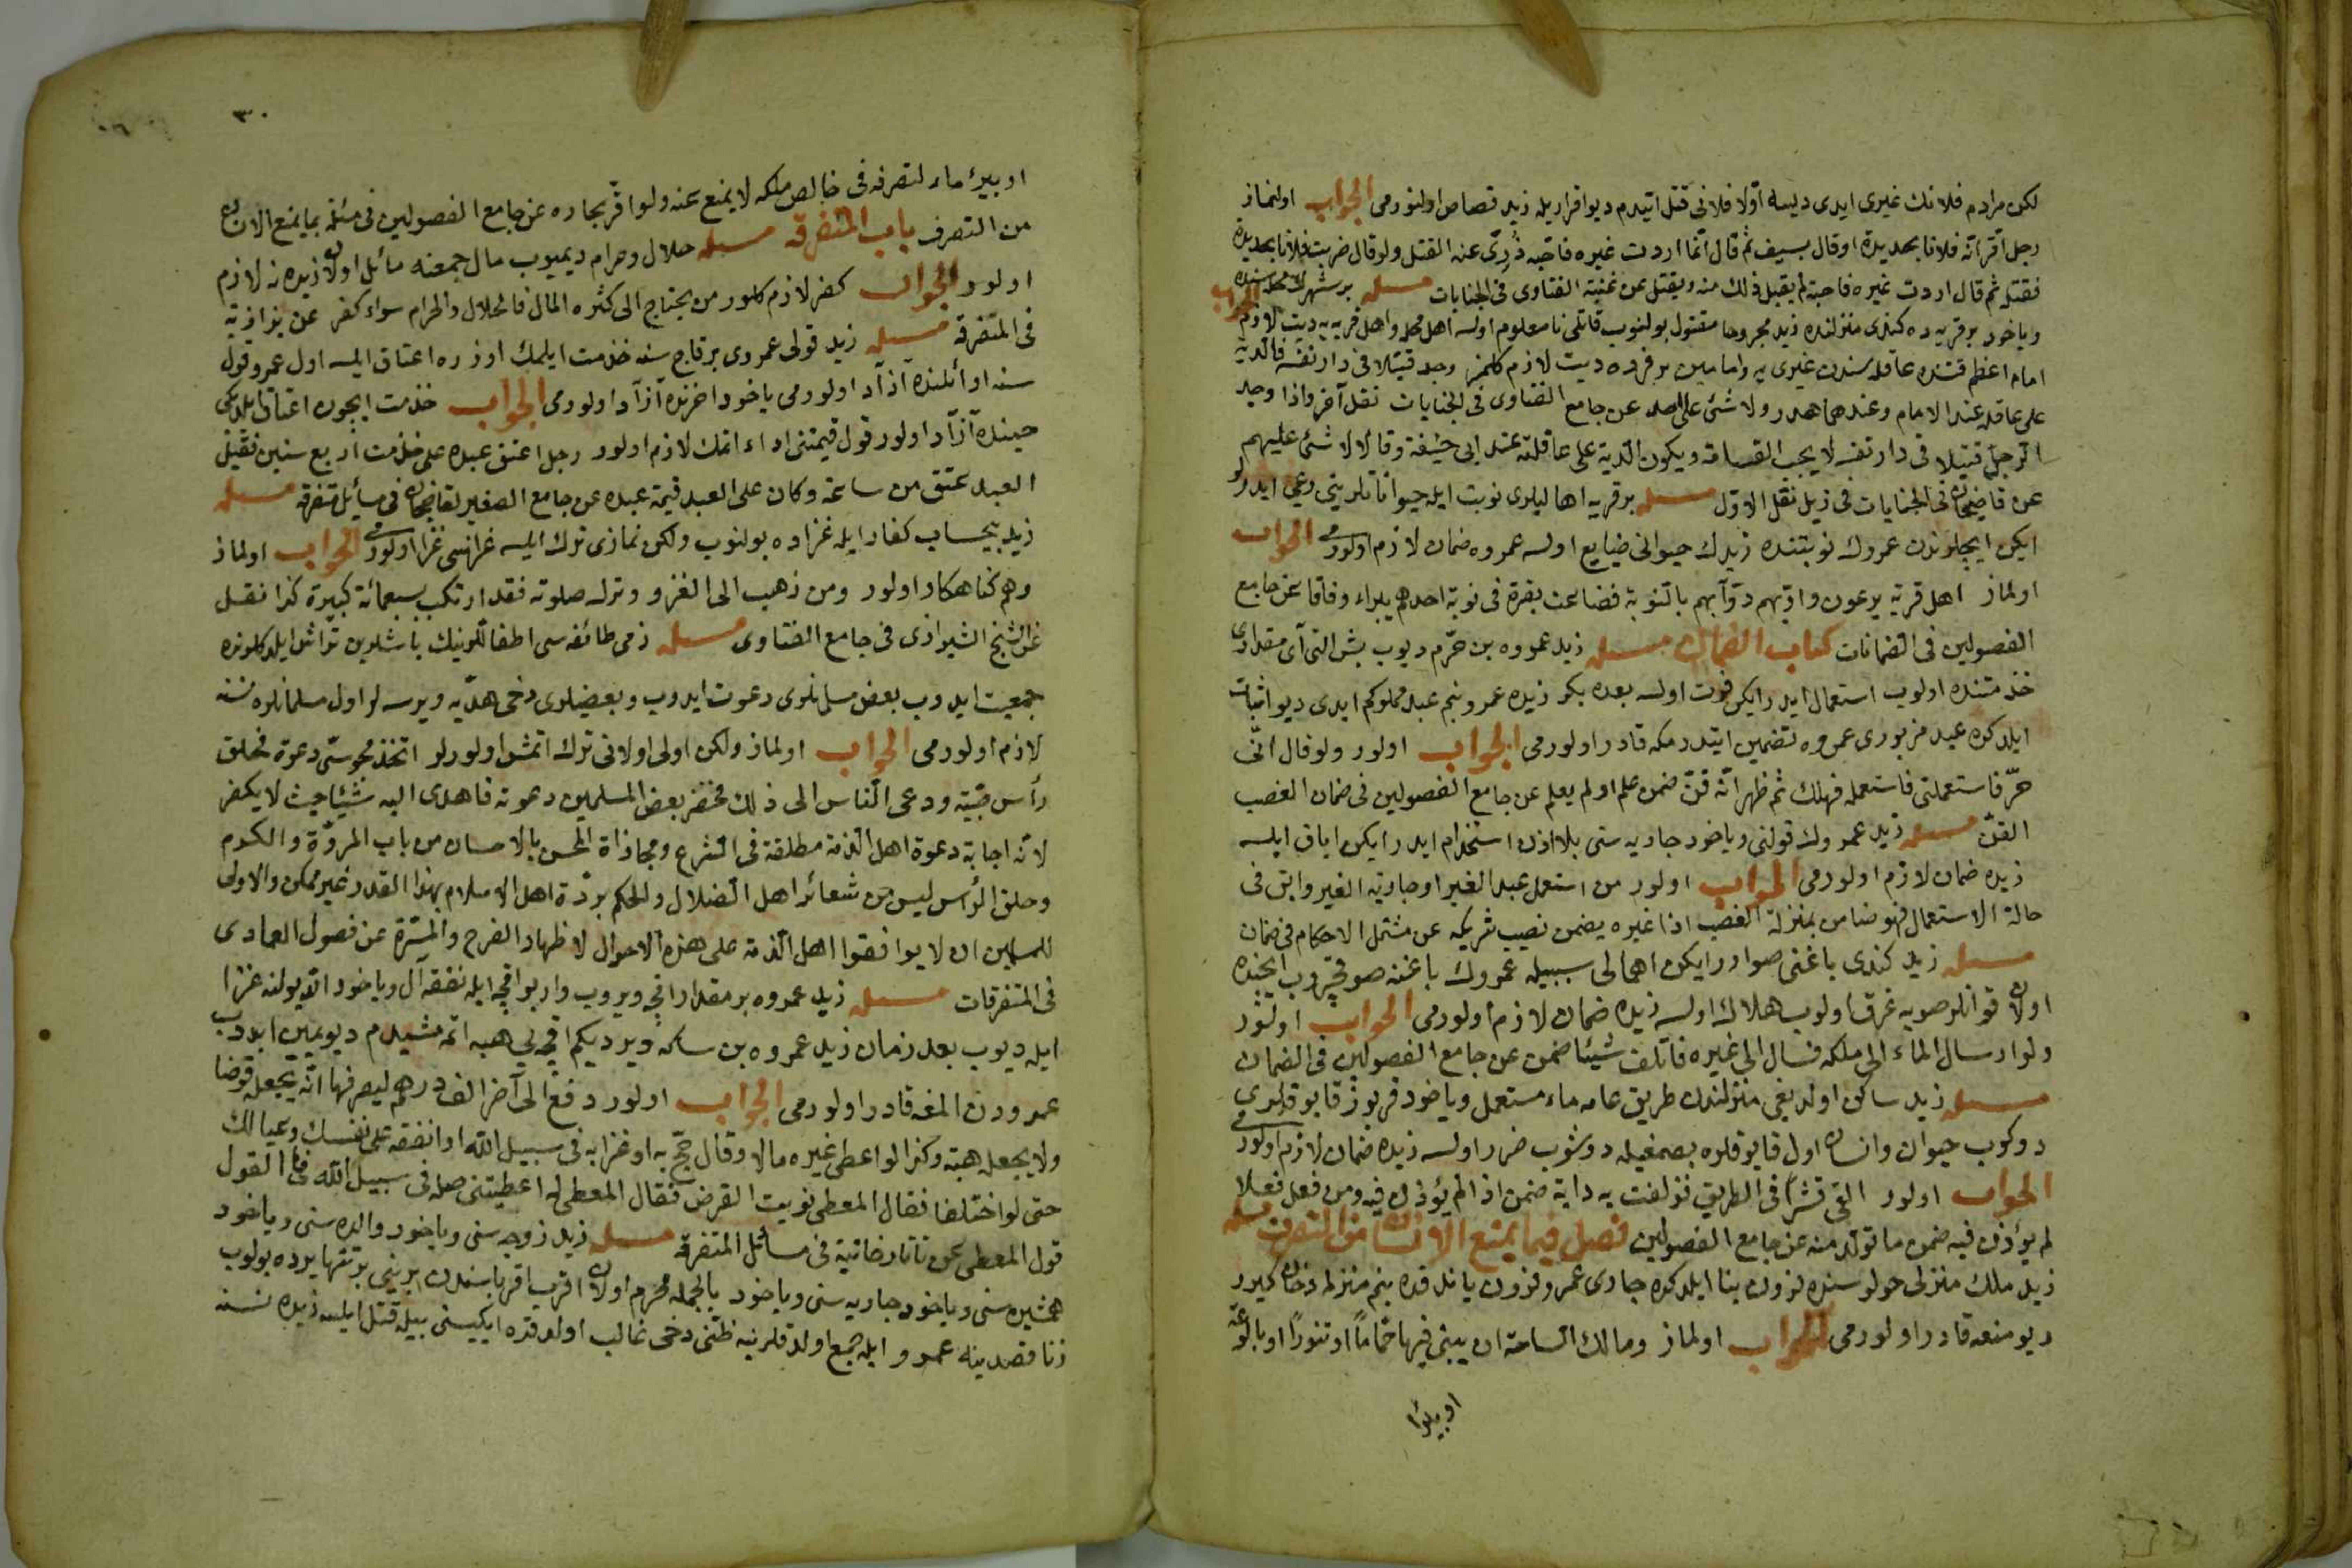 لكن مرادم فلانك غيرى ايدى ديسه اوّلا فلانى قتل ايتدم ديو اقراريله زيد قصاص اولنورمى الجواب اولنماز
رجل اقر انّه فلانا بحديدة او قال بسيف ثم قال انّما اردت غيره فاصبته دُرِئ عنه القتل ولو قال ضربت فلانا بحديدة
فقتلته ثم قال اردت غيره فاصبته لم يقبل ذلك منه ويقتل عن غنية الفتاوى فى الجنايات مسئله بر شهرك محله سنده
وياخود بر قريه ده كندى منزلنده زيد مجروحا مقتول بولنوب قاتلى نامعلوم اولسه اهل محله واهل قريه يه ديت لازم الجواب
امام اعظم قتنده عاقله سندن غيرى يه وامامين بر فرده ديت لازم كلمز وجد قتيلا فى دار نفسه فالدية
على عاقلته عند الامام وعندهما هدر ولا شئ على احد عن جامع الفتاوى فى الجنايات نقل آخر واذا وجد
الرجل قتيلا فى دار نفسه لا يجب القسامة ويكون الدية على عاقلته عند ابى حنيفة وقالا لا شئ عليهم
عن قاضيخان فى الجنايات فى ذيل نقل الاوّل مسئله بر قريه اهاليلرى نوبت ايله حيواناتلرينى رعى ايدرلر
ايكن ايچلرندن عمروك نوبتنده زيدك حيوانى ضايع اولسه عمروه ضمان لازم اولورمى الجواب
اولماز اهل قرية يرعون دوابّهم بالنوبة فضاعت بقرة فى نوبة احدهم يبراء وفاقا عن جامع
الفصولين فى الضمانات كتاب الضمان مسئله زيد عمروه بن حرّم ديوب بش التى آى مقدارى
خدمتنده اولوب استعمال ايدر ايكن فوت اولسه بعده بكر زيده عمرو بنم عبد مملوكم ايدى ديو اثبات
ايلدكده عبد مزبورى عمروه تضمين ايتدرمكه قادر اولورمى الجواب اولور ولو قال انّى
حرّ فاستعملنى فاستعمله فهلك ثم ظهر انّه قنّ ضمن علم او لم يعلم عن جامع الفصولين فى ضمان الغصب
القنّ مسئله زيد عمروك قولنى وياخود جاريه سنى بلا اذن استخدام ايدر ايكن اباق ايلسه
زيده ضمان لازم اولورمى الجواب اولور من استعمل عبد الغير او جارية الغير وابق فى
حالة الاستعمال فهو ضامن بمنزلة الغصب اذا غيره يضمن نصيب شريكه عن مشتمل الاحكام فى ضمان
مسئله زيد كندى باغنى صوارر ايكن اهمالى سببيله عمروك باغنه صو قچروب ايچنده
اولان قوانلر صويه غرق اولوب هلاك اولسه زيده ضمان لازم اولورمى الجواب اولنور
ولو ارسال الماء الى ملكه فسال الى غيره فاتلف شيئا ضمن عن جامع الفصولين فى الضمان
مسئله زيد ساكن اولديغى منزلندن طريق عامه ماء مستعمل وياخود قربوز قابوقلرى
دوكوب حيوان وانسان اول قابوقلره بصمغيله دوشوب ضرر اولسه زيده ضمان لازم اولورمى
الجواب اولور القى قشرا فى الطريق فزلقت به دابة ضمن اذ لم يؤذن فيه ومن فعل فعلا
لم يؤذن فيه ضمن ما تولّد منه عن جامع الفصولين فصل فيما يمنع الانسان من التصرف مسئله
زيد ملك منزلى حولوسنده فرون بنا ايلدكده جارى عمرو فرون ياندقده بنم منزلمه دخان كيرر
ديو منعه قادر اولورمى الجواب اولماز ومالك الساحة ان يبنى فيها حمّاما او تنّورا او بالوعة
او بئرا
٣٠
او بيرء ماء لتصرفه فى خالص ملكه لا يمنع عنه ولو اضرّ بجاره عن جامع الفصولين فى مسئلة بما يمنع الانسان
من التصرف باب المتفرقه مسئله حلال وحرام ديميوب مال جمعنه مائل اولان زيده نه لازم
اولور الجواب كفر لازم كلور من يحتاج الى كثره المال فالحلال والحرام سواء كفر عن بزازية
فى المتفرقة مسئله زيد قولى عمروى بر قاچ سنه خدمت ايلمك اوزره اعتاق ايلسه اول عمرو قول
سنه اوائلنده آزاد اولورمى ياخود اخرنده آزاد اولورمى الجواب خدمت ايچون اعتاق ايلديكى
حينده آزاد اولور قول قيمتنى اداء اتمك لازم اولور رجل اعتق عبده على خدمت اربع سنين فقبل
العبد عتق من ساعته وكان على العبد قيمة عبده عن جامع الصغير لقاضيخان فى مسائل متفرقه مسئله
زيد بيحساب كفار ايله غزاده بولنوب ولكن نمازى ترك ايلسه غزاسى غزا اولورمى الجواب اولماز
وهم كناهكار اولور ومن ذهب الى الغزو وترك صلوته فقد ارتكب سبعمائة كبيرة كذا نقل
عن الشيخ الشيرازى فى جامع الفتاوى مسئله ذمى طائفه سى اطفاللرينك باشلرين تراش ايلدكلرنده
جمعيت ايدوب بعض مسلمانلرى دعوت ايدوب وبعضيلرى دخى هديّه ويرسه لر اول مسلمانلره نسنه
لازم اولورمى الجواب اولماز ولكن اولى اولانى ترك اتمش اولورلر اتخذ مجوسى دعوة فحلق
رأس صبيّه ودعى الناس الى ذلك فحضر بعض المسلمين دعوته فاهدى اليه شيئا حيث لا يكفر
لانّه اجابة دعوة اهل الذمة مطلقة فى الشرع ومجازاة المحسن بالاحسان من باب المروّة والكرم
وحلق الرأس ليس من شعائر اهل الضلال والحكم بردّة اهل الاسلام بهذا القدر غير ممكن والاولى
للمسلمين ان لا يوافقوا اهل الذمة على هذه الاحوال لاظهار الفرح والمسرّة عن فصول العمادى
فى المتفرقات مسئله زيد عمروه بر مقدار اقچه ويروب وار بو اقچه ايله نفقه آل وياخود الله يولنه غزا
ايله ديوب بعد زمان زيد عمروه بن سكه ويرديكم اقچه يى هبه اتمه مشيدم ديو يمين ايدوب
عمرودن المغه قادر اولورمى الجواب اولور دفع الى آخر الف درهم ليصرفها انّه يجعل قرضا
ولا يجعل هبة وكذا لو اعطى غيره مالا وقال حجّ به او غزا به فى سبيل الله او انفقه على نفسك وعيالك
حتى لو اختلفا فقال المعطى نويت القرض فقال المعطى له اعطيتنى صله فى سبيل الله فالقول
قول المعطى عن تاتارخانية فى مسائل المتفرقه مسئله زيد زوجه سنى وياخود والده سنى وياخود
همشيره سنى وياخود جاريه سنى وياخود بالجمله محرم اولان اقرب اقرباسندن برينى بر تنها يرده بولوب
زنا قصدينه عمرو ايله جمع اولدقلرينه ظنّى دخى غالب اولدقده ايكيسنى بيله قتل ايلسه زيده نسنه